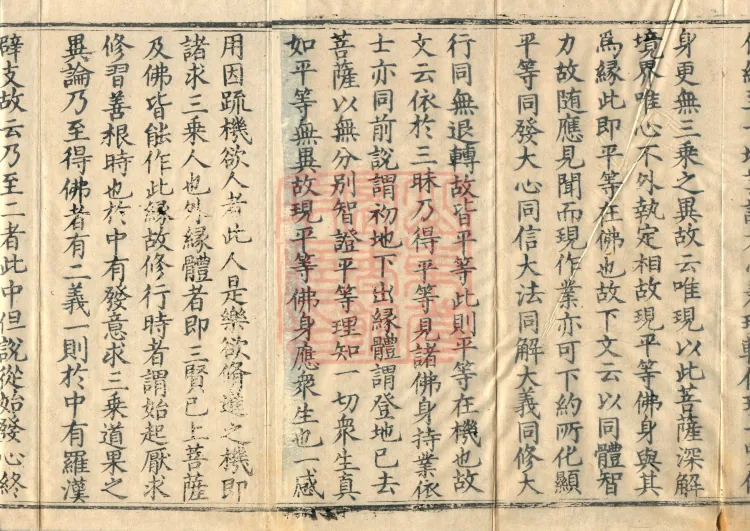 身更無三乘之異故云唯現以此菩薩深解
境界唯心不外執定相故現平等佛身與其
爲緣此即平等在佛也故下文云以同體智
力故随應見聞而現作業亦可下約所化顯
平等同發大心同信大法同解大義同修大
行同無退轉故皆平等此則平等在機也故
文云依於三昧乃得平等見諸佛身持業依
士亦同前說謂初地下出緣體謂登地已去
菩薩以無分别智證平等理知一切衆生真
如平等無異故現平等佛身應衆生也一感
用因䟽機欲人者此人是樂欲脩進之機即
諸求三乘人也外緣體者即三賢已上菩薩
及佛皆能作此緣故修行時者謂始起厭求
修習善根時也於中有發意求三乘道果之
異論乃至得佛者有二義一則於中有羅漢
辟支故云乃至二者此中但說從始發心終